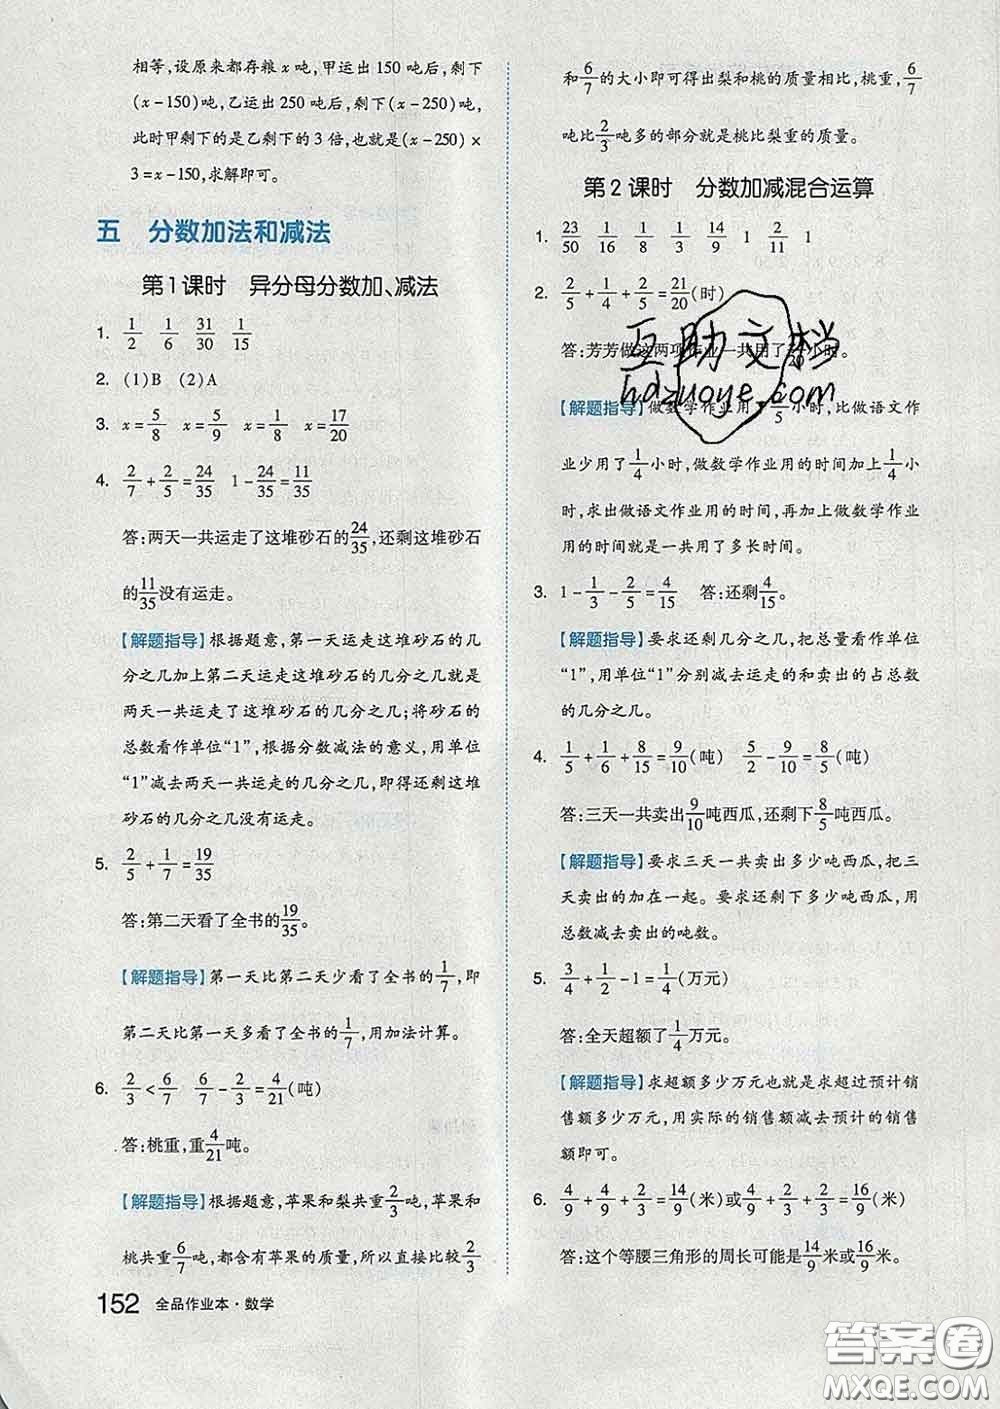 相等,设原来都存粮 x 吨,甲运出 150 吨后,剩下
(x-150)吨,乙运出 250 吨后,剩下(x-250)吨,
此时甲剩下的是乙剩下的 3 倍,也就是(x-250)×
3=x-150,求解即可。
五 分数加法和减法
第 1 课时 异分母分数加、减法
1. 1/2 1/6 31/30 1/15
2. (1)B (2)A
3. x=5/8 x=5/9 x=1/8 x=17/20
4. 2/7+2/5=24/35 1-24/35=11/35
答:两天一共运走了这堆砂石的24/35,还剩这堆砂石
的11/35没有运走。
【解题指导】根据题意,第一天运走这堆砂石的几
分之几加上第二天运走这堆砂石的几分之几就是
两天一共运走了这堆砂石的几分之几;将砂石的
总数看作单位“1”,根据分数减法的意义,用单位
“1”减去两天一共运走的几分之几,即得还剩这堆
砂石的几分之几没有运走。
5. 2/5+1/7=19/35
答:第二天看了全书的19/35。
【解题指导】第一天比第二天少看了全书的1/7,即
第二天比第一天多看了全书的1/7,用加法计算。
6. 2/3<6/7 6/7-2/3=4/21(吨)
答:桃重,重4/21吨。
【解题指导】根据题意,苹果和梨共重2/3吨,苹果和
桃共重6/7吨,都含有苹果的质量,所以直接比较2/3
152 全品作业本·数学
和6/7的大小即可得出梨和桃的质量相比,桃重,6/7
吨比2/3吨多的部分就是桃比梨重的质量。
第 2 课时 分数加减混合运算
1. 23/50 1/16 1/8 1/3 14/9 1 2/11 1
2. 2/5+1/4+2/5=21/20(时)
答:芳芳做这两项作业一共用了21/20小时。
【解题指导】做数学作业用了2/5小时,比做语文作
业少用了1/4小时,做数学作业用的时间加上1/4小
时,求出做语文作业用的时间,再加上做数学作业
用的时间就是一共用了多长时间。
3. 1-1/3-2/5=4/15 答:还剩4/15。
【解题指导】要求还剩几分之几,把总量看作单位
“1”,用单位“1”分别减去运走的和卖出的占总数
的几分之几。
4. 1/5+1/6+8/15=9/10(吨) 5/2-9/10=8/5(吨)
答:三天一共卖出9/10吨西瓜,还剩下8/5吨西瓜。
【解题指导】要求三天一共卖出多少吨西瓜,把三
天卖出的加在一起。要求还剩下多少吨西瓜,用
总数减去卖出的吨数。
5. 3/4+1/2-1=1/4(万元)
答:全天超额了1/4万元。
【解题指导】求超额多少万元也就是求超过预计销
售额多少万元,用实际的销售额减去预计的销售
额即可。
6. 4/9+4/9+2/3=14/9(米)或4/9+2/3+2/3=16/9(米)
答:这个等腰三角形的周长可能是14/9米或16/9米。
互助文档
hdzuoye.com
答案圈
MXQE.COM